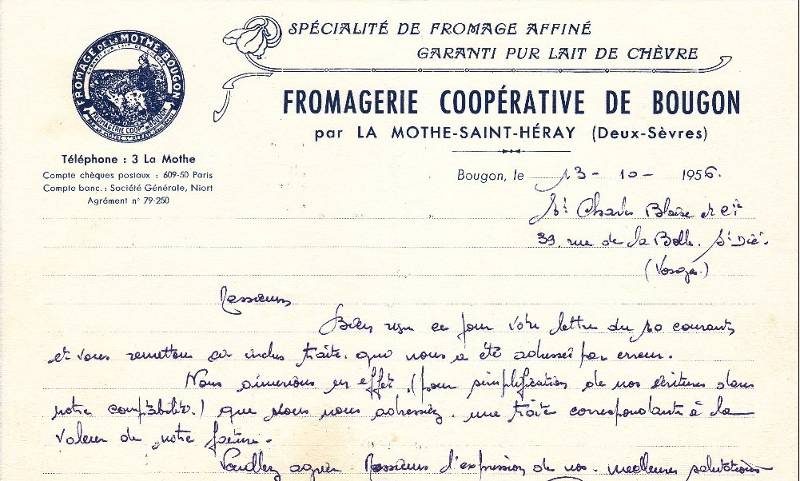 SPÉCIALITÉ DE FROMAGE AFFINÉ
GARANTI PUR LAIT DE CHÈVRE
FROMAGE DE LA MOTHE-BOUGON
FROMAGERIE COOP. BOUGON
FROMAGERIE COOPÉRATIVE DE BOUGON
par LA MOTHE-SAINT-HÉRAY (Deux-Sèvres)
Téléphone : 3 La Mothe
Compte chèques postaux : 609-50 Paris
Compte banc. : Société Générale, Niort
Agrément n° 79-250
Bougon, le 13-10-1956.
Charles Blaise et Cie
39, rue de la Bolle. St Dié.
(Vosges)
Messieurs
Bien reçu ce jour votre lettre du 10 courant
et vous remettons ci inclus traite. qui nous a été adressée par erreur.
Nous aimerions en effet. (pour simplification de nos écritures dans
notre comptabilité.) que vous nous adressiez. une traite correspondante à la
valeur de notre facture.
Veuillez agréer Messieurs l'expression de nos. meilleures salutations